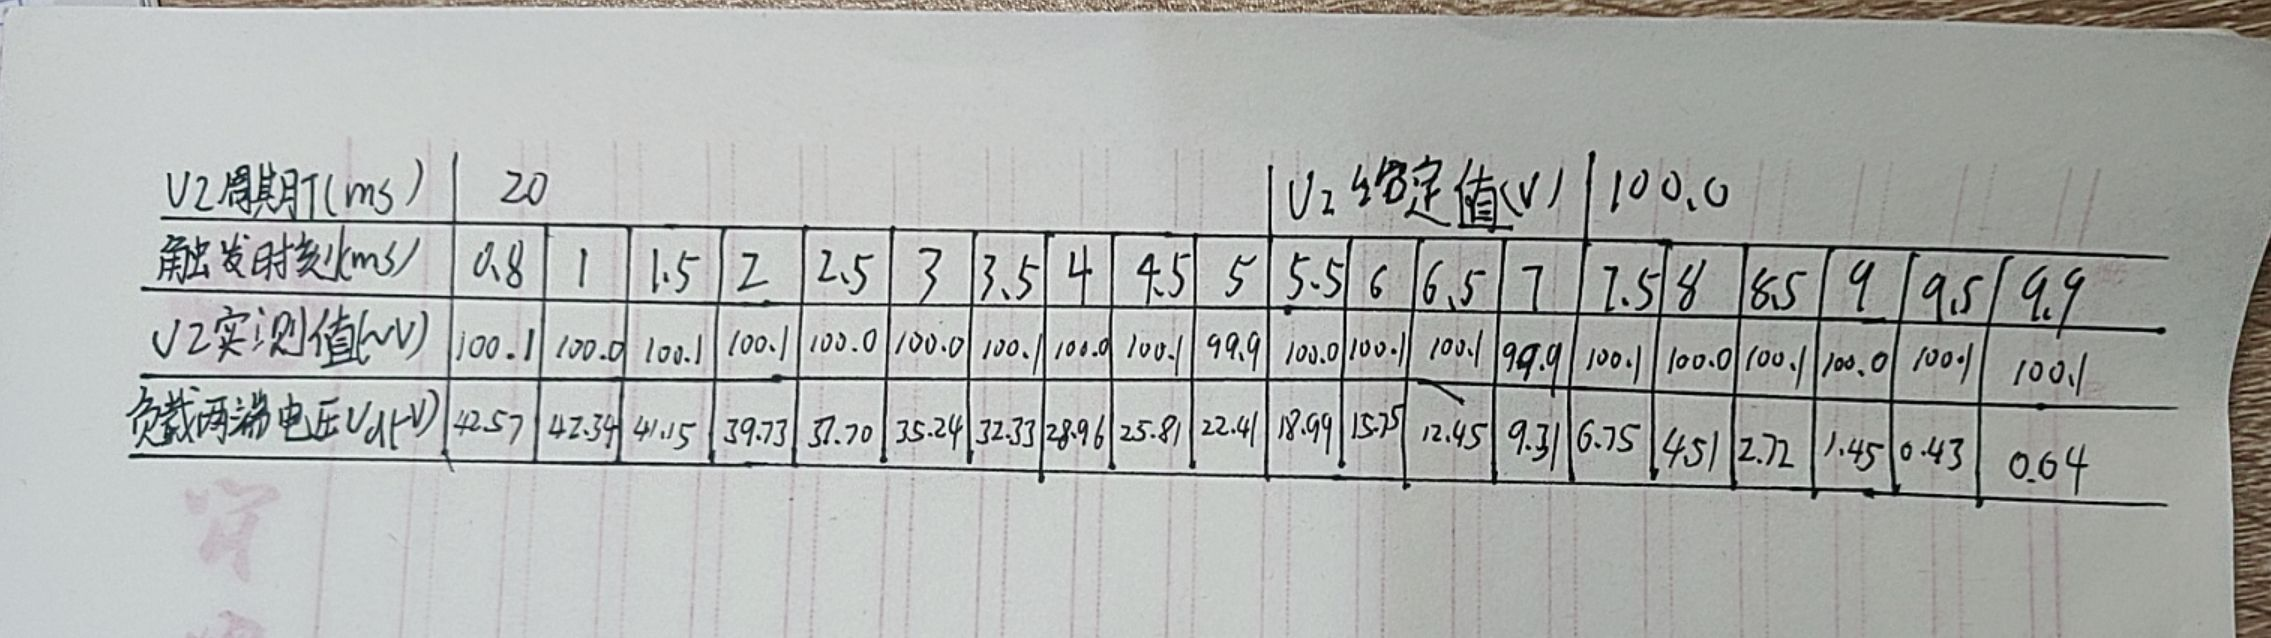 U2周期T(ms) 20 U2给定值(V) 100.0
触发时刻(ms) 0.8 1 1.5 2 2.5 3 3.5 4 4.5 5 5.5 6 6.5 7 7.5 8 8.5 9 9.5 9.9
U2实测值(~V) 100.1 100.0 100.1 100.1 100.0 100.0 100.1 100.0 100.1 99.9 100.0 100.1 100.1 99.9 100.1 100.0 100.1 100.0 100.1 100.1
负载两端电压Ud(-V) 42.57 42.34 41.15 39.73 37.70 35.24 32.33 28.96 25.81 22.41 18.99 15.75 12.45 9.31 6.75 4.51 2.72 1.45 0.43 0.04